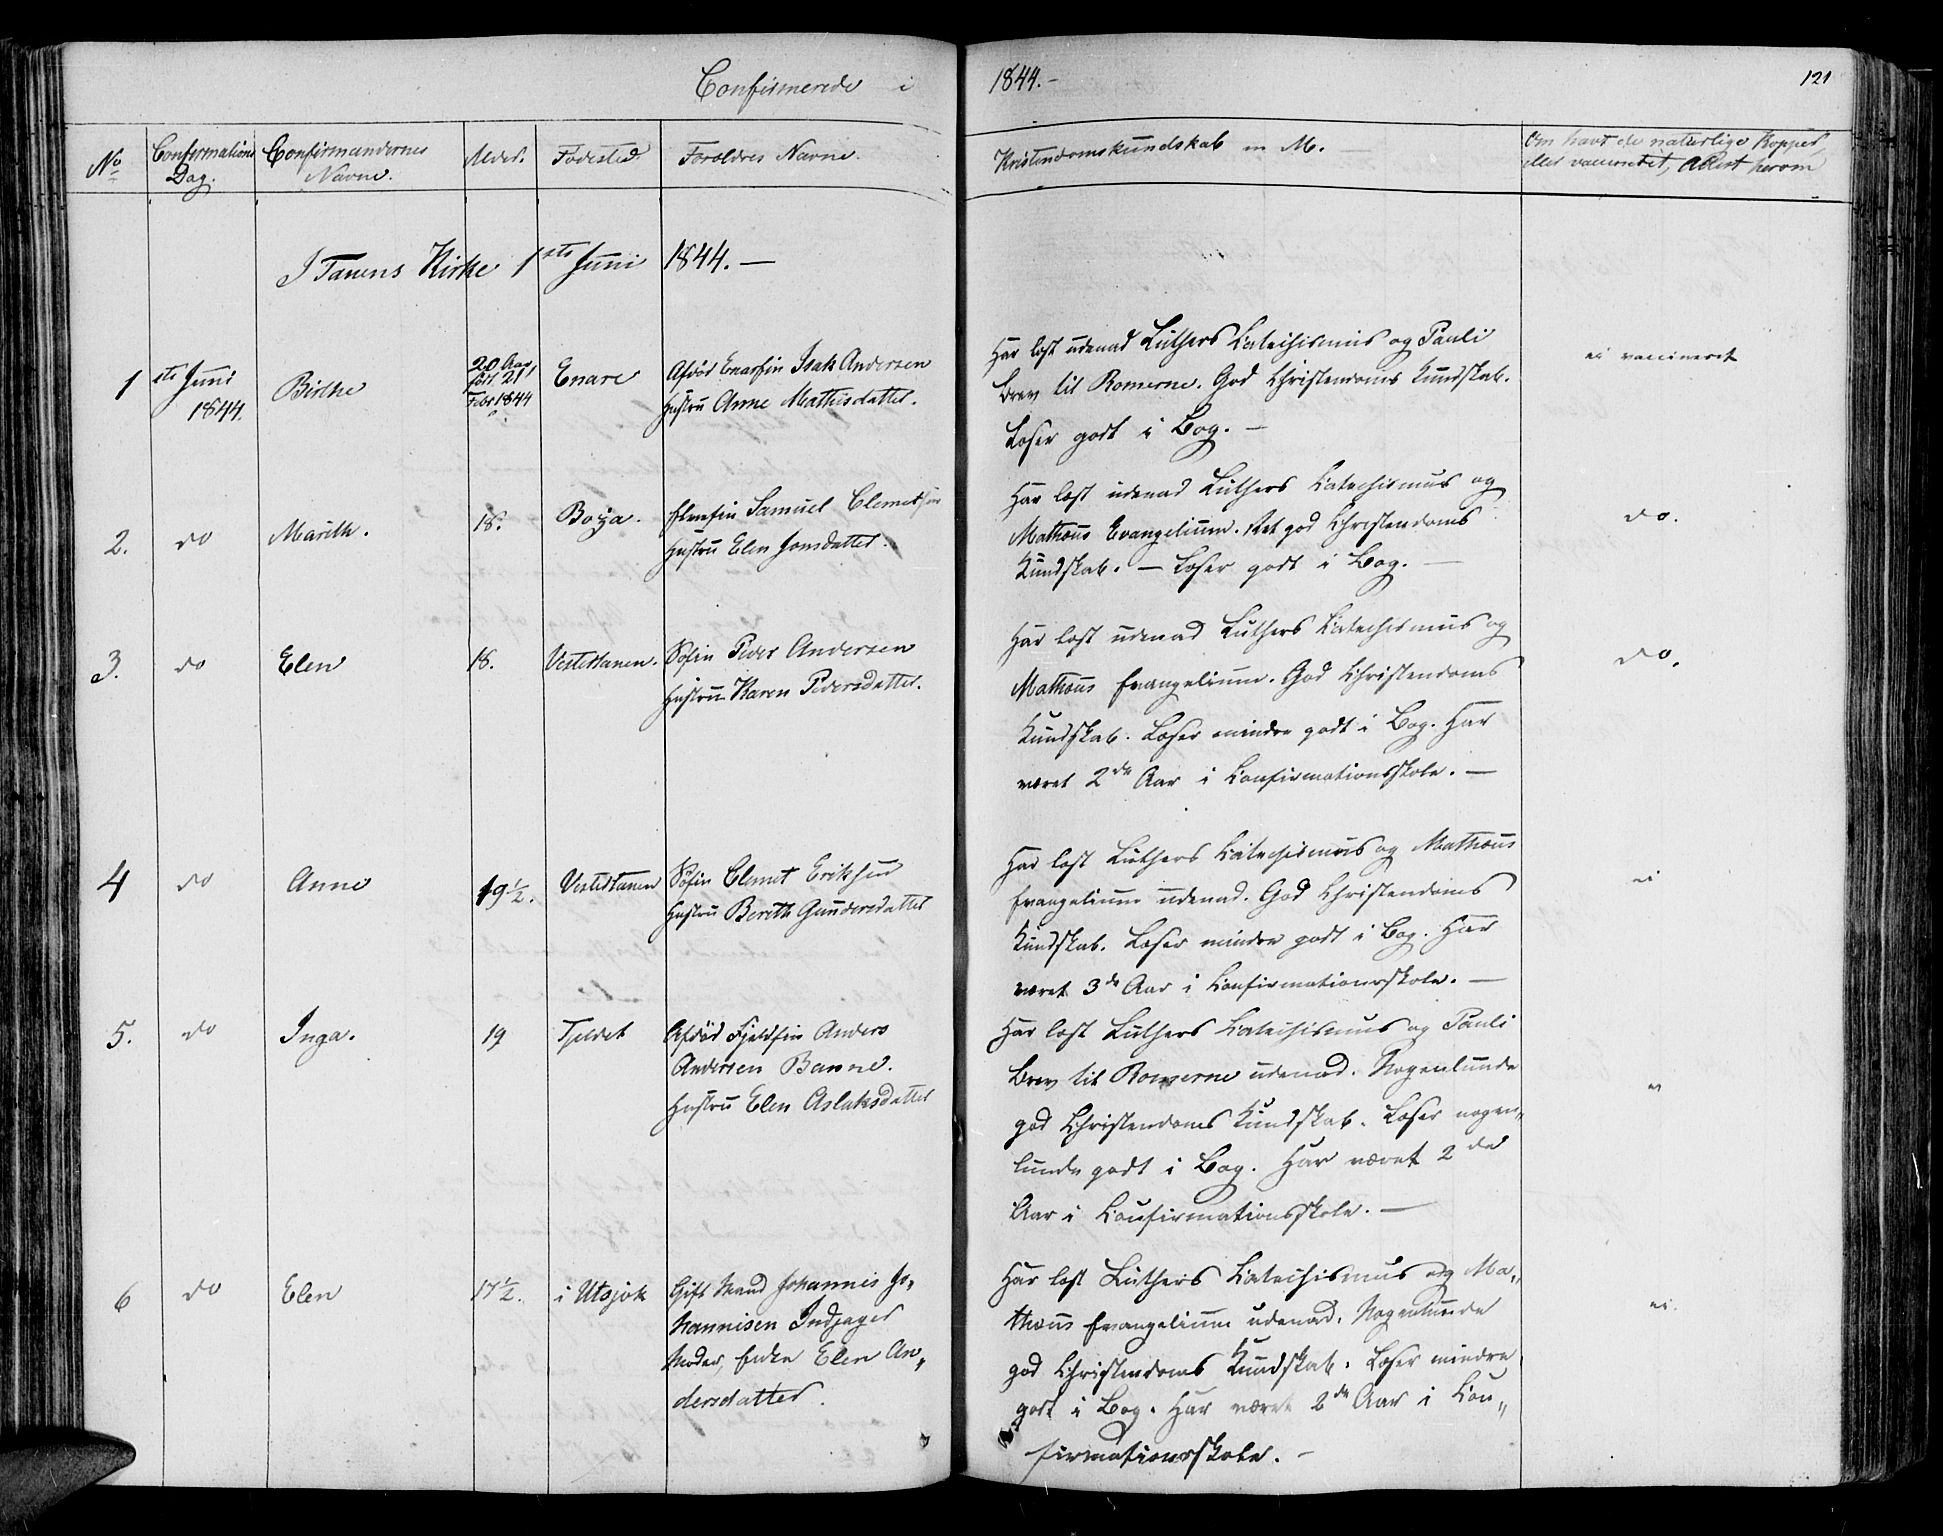 Confirmerede i 1844.-
121
No
Confirmations Dag.
Confirmandernes Navne.
Alder.
Fødested.
Forældres Navne.
Kristendomskundskab m. M.
Om havt de naturlige Kopper,
eller vaccineret, Attest herom
I Tanens Kirke 1ste Juni 1844. —
1
ste Juni
1844.
Birthe
20 Aar
født 21
Febr 1844
Enare
Afdød Enarefin Isak Andersen
Hustru Anne Mathisdatter.
Har læst udenad Luthers Catechismus og Pauli
Brev til Romerne. God Christendoms Kundskab.
Læser godt i Bog. —
ei vaccineret
2.
do
Marith.
18.
Samuel Clemetsen
Hustru Elen Jonsdatter.
Har læst udenad Luthers Catechismus og
Mathæus Evangelium. Ret god Christendoms
Kundskab. — Læser godt i Bog. —
do.
3.
do
Elen
18.
Vestertanen.
Søfin Peder Andersen
Hustru Karen Pedersdatter.
Har læst udenad Luthers Catechismus og
Mathæus Evangelium. God Christendoms
Kundskab. Læser mindre godt i Bog. Har
været 2de Aar i Confirmationsskole. —
do.
4
do
Anne
19½.
Vestertanen
Søfin Clemet Eriksen
Hustru Berith Gundersdatter
Har læst Luthers Catechismus og Mathæus
Evangelium udenad. God Christendoms
Kundskab. Læser mindre godt i Bog. Har
været 3de Aar i Confirmationsskole. —
ei
5.
do
Inga.
19
Fjeldet
Afdød Fjeldfin Anders
Andersen Banne.
Hustru Elen Aslaksdatter
Har læst Luthers Catechismus og Pauli
Brev til Romerne udenad. Nogenlunde
god Christendoms Kundskab. Læser nogen„
lunde godt i Bog. Har været 2de
Aar i Confirmationsskole. —
ei
6
do
Elen
17½.
i Utsjok
Gift Mand Johannis Jo„
hannisen Indjager
Moder, Enken Elen An„
dersdatter.
Har læst Luthers Catechismus og Ma„
thæus Evangelium udenad. Nogenlunde
god Christendoms Kundskab. Læser mindre
godt i Bog. Har været 2de Aar i Con„
firmationsskole. —
ei.